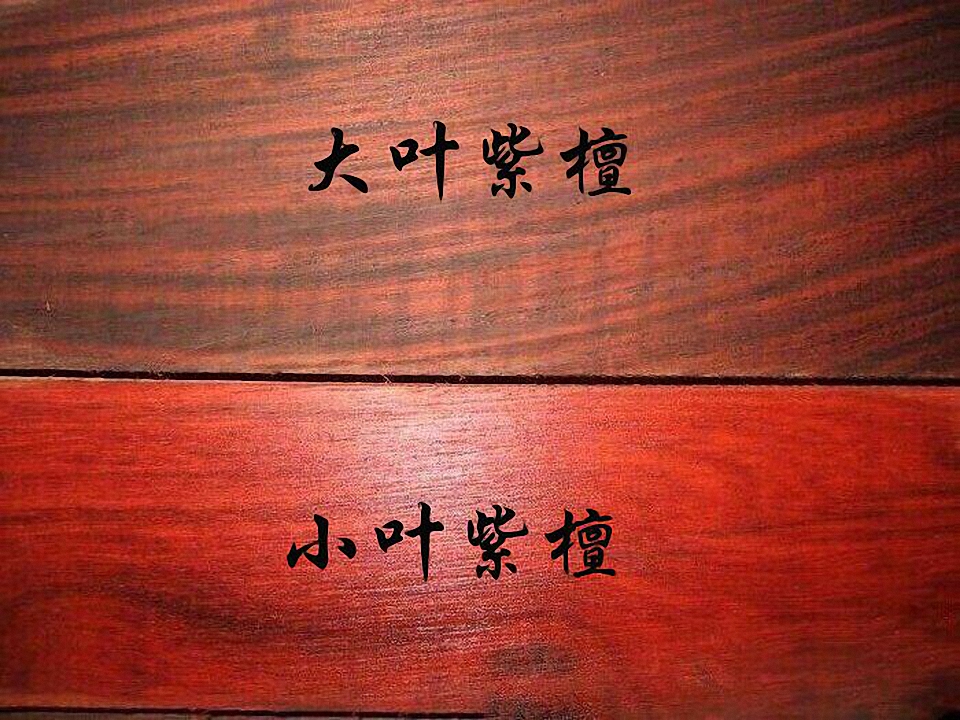 大叶紫檀
小叶紫檀